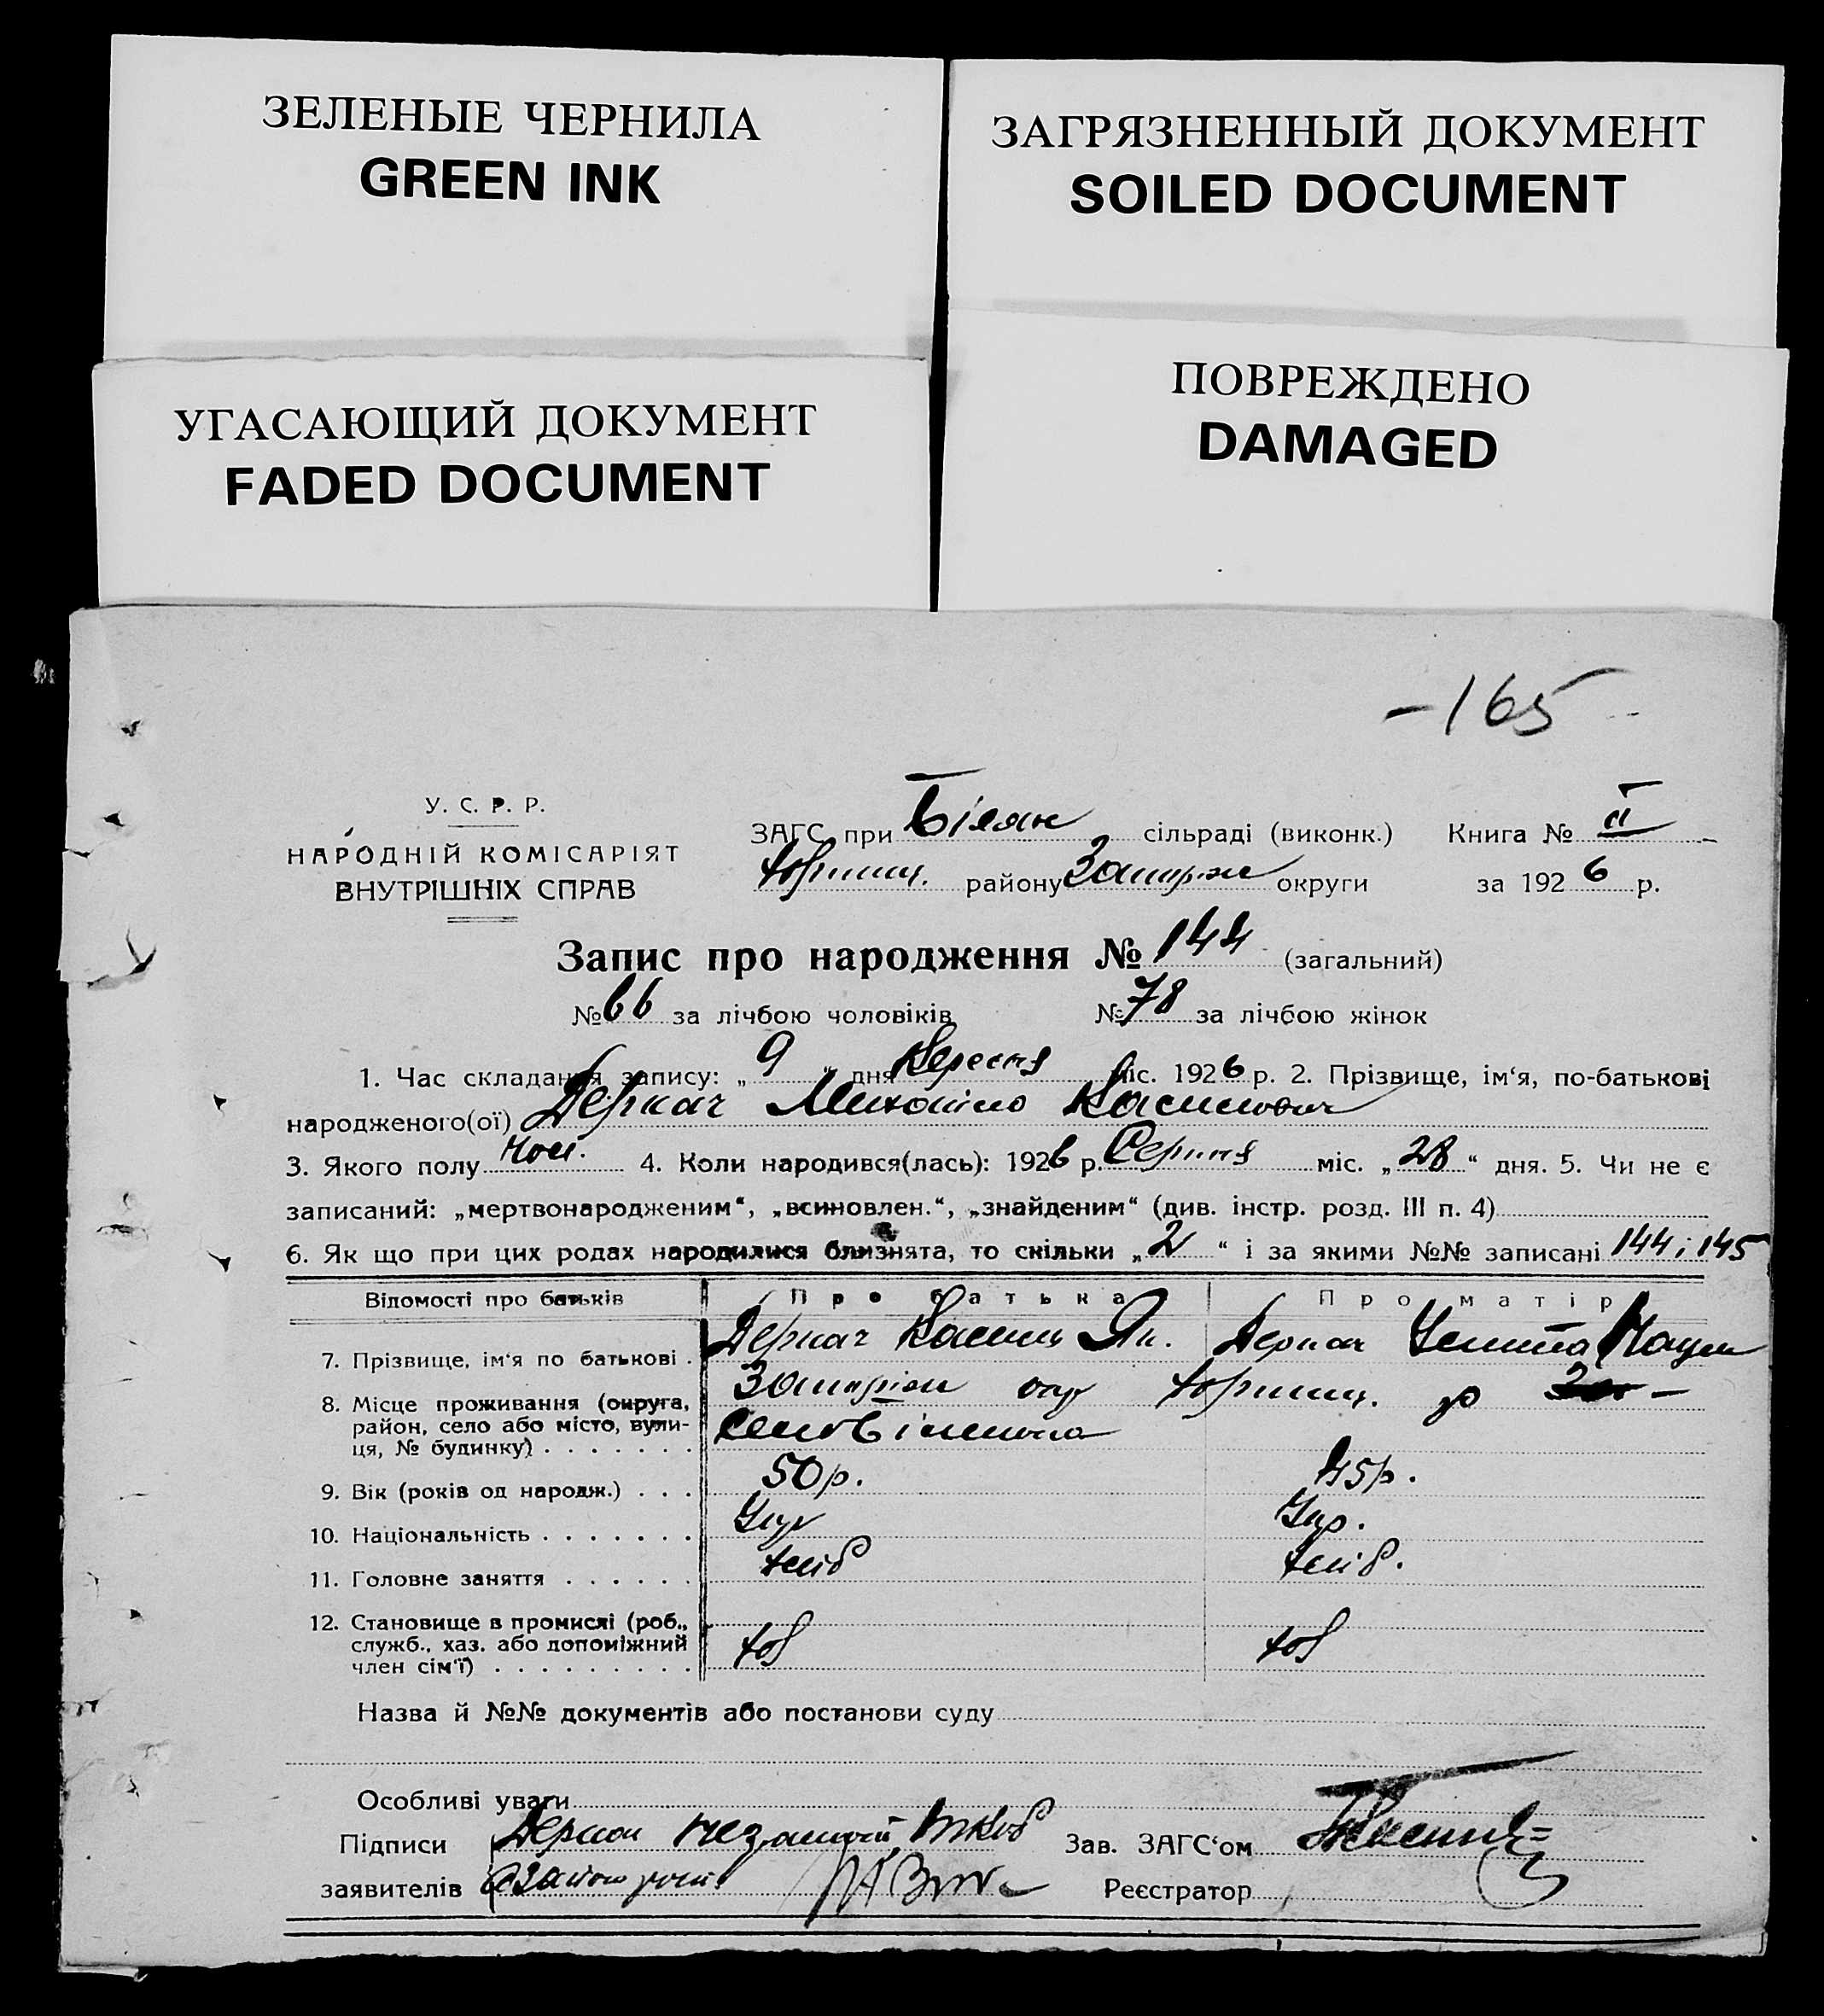 ЗЕЛЕНЫЕ ЧЕРНИЛА
GREEN INK
ЗАГРЯЗНЕННЫЙ ДОКУМЕНТ
SOILED DOCUMENT
УГАСАЮЩИЙ ДОКУМЕНТ
FADED DOCUMENT
ПОВРЕЖДЕНО
DAMAGED
-165
У. С. Р. Р.
НАРОДНІЙ КОМІСАРІЯТ
ВНУТРІШНІХ СПРАВ
ЗАГС при Білян сільраді (виконк.) Книга № II
району округи за 1926 р.
Запис про народження № 144 (загальний)
№ 66 за лічбою чоловіків № 78 за лічбою жінок
1. Час складання запису: „9“ дня Вересня міс. 1926 р. 2. Прізвище, ім‘я, по-батькові
народженого(ої) Деркач Михайло Касянович
3. Якого полу чол. 4. Коли народився(лась): 1926 р. Серпня міс. „28“ дня. 5. Чи не є
записаний: „мертвонародженим“, „всиновлен.“, „знайденим“ (див. інстр. розд. III п. 4)
6. Як що при цих родах народилися близнята, то скільки „2“ і за якими №№ записані 144 і 145
Відомості про батьків Про батька Про матір
7. Прізвище, ім‘я по батькові . Деркач Деркач
8. Місце проживання (округа, район, село або місто, вулиця, № будинку) . . . . . . .
9. Вік (років од народж.) . . . 50 р. 45 р.
10. Національність . . . . . . . Укр Укр.
11. Головне заняття . . . . . . хліб хліб.
12. Становище в промислі (роб., служб., хаз. або допоміжний член сім‘ї) . . . . . . . . . хаз хаз
Назва й №№ документів або постанови суду
Особливі уваги
Підписи Деркач Зав. ЗАГС‘ом
заявителів Реєстратор